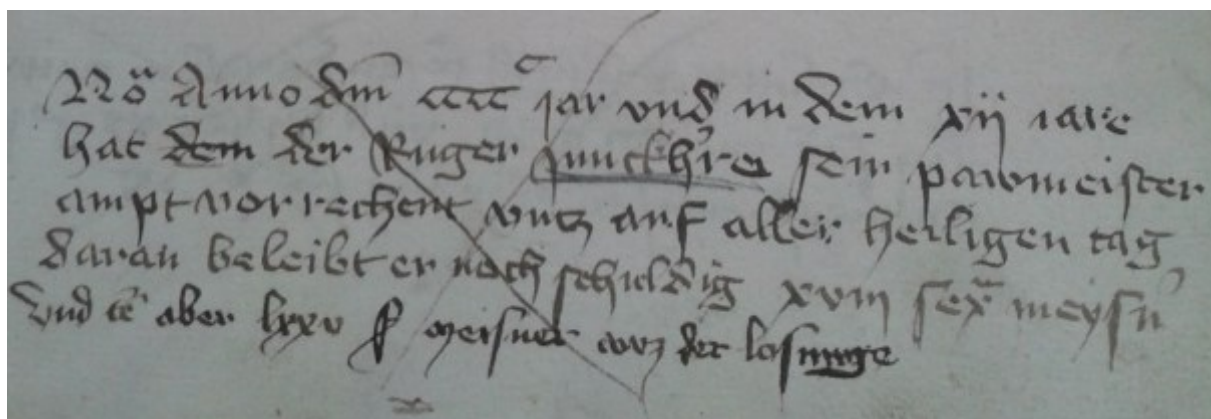 Anno dm cccc jar vnd in dem xij iare
hat dem der Ruger Junckh're sein pawmeister
ampt vorrechent vntz auf aller heiligen tag
daran beleibt er noch schuldig xviij sex meysn
Vnd aber lxxv meisner von der losunge